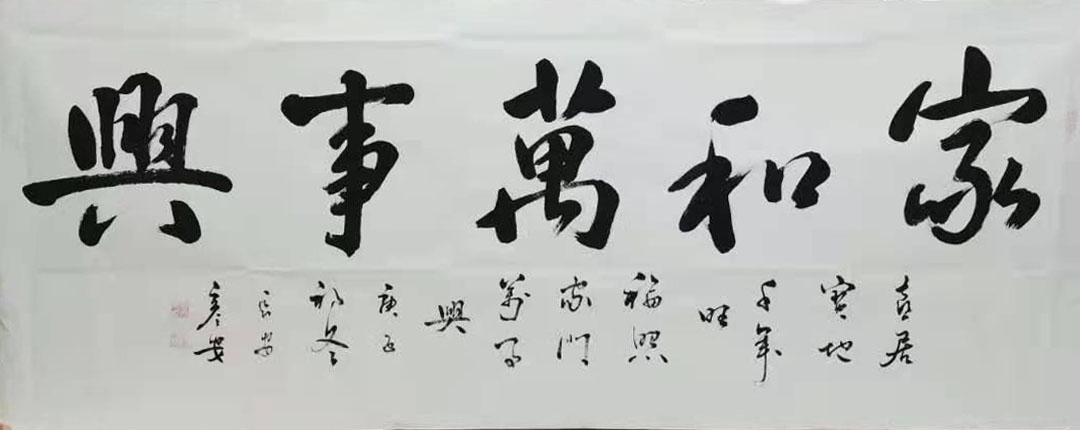 家和萬事興
喜居
寶地
千年
旺
福照
家門
萬事
興
庚子
初冬
長安
彥安